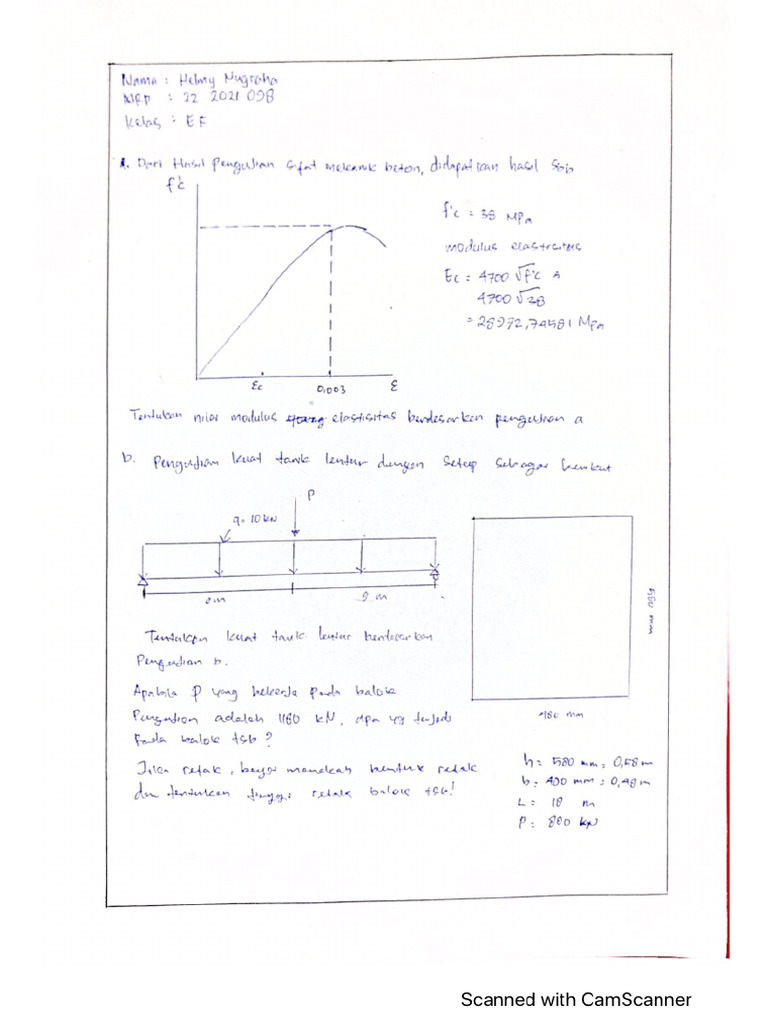 Nama : Helmy Nugraha
NRP : 22 2021 098
Kelas : EF
1. Dari Hasil Pengujian sifat mekanik beton, didapatkan hasil sbb
f'c
Ec
0,003
ε
f'c = 38 MPa
modulus elastisitas
Ec = 4700 √f'c
4700 √38
= 28972,74581 MPa
Tentukan nilai modulus elastisitas berdasarkan pengujian a
b. Pengujian kuat tarik lentur dengan setup sebagai berikut
P
q = 10 kN
9 m
580 mm
480 mm
Tentukan kuat tarik lentur berdasarkan
Pengujian b.
Apabila P yang bekerja pada balok
Pengujian adalah 1180 kN, apa yg terjadi
Pada balok tsb?
Jika retak, bagaimanakah bentuk retak
dan tentukan tinggi retak balok tsb!
h = 580 mm = 0,58 m
b = 480 mm = 0,48 m
L = 18 m
P = 880 kN
Scanned with CamScanner